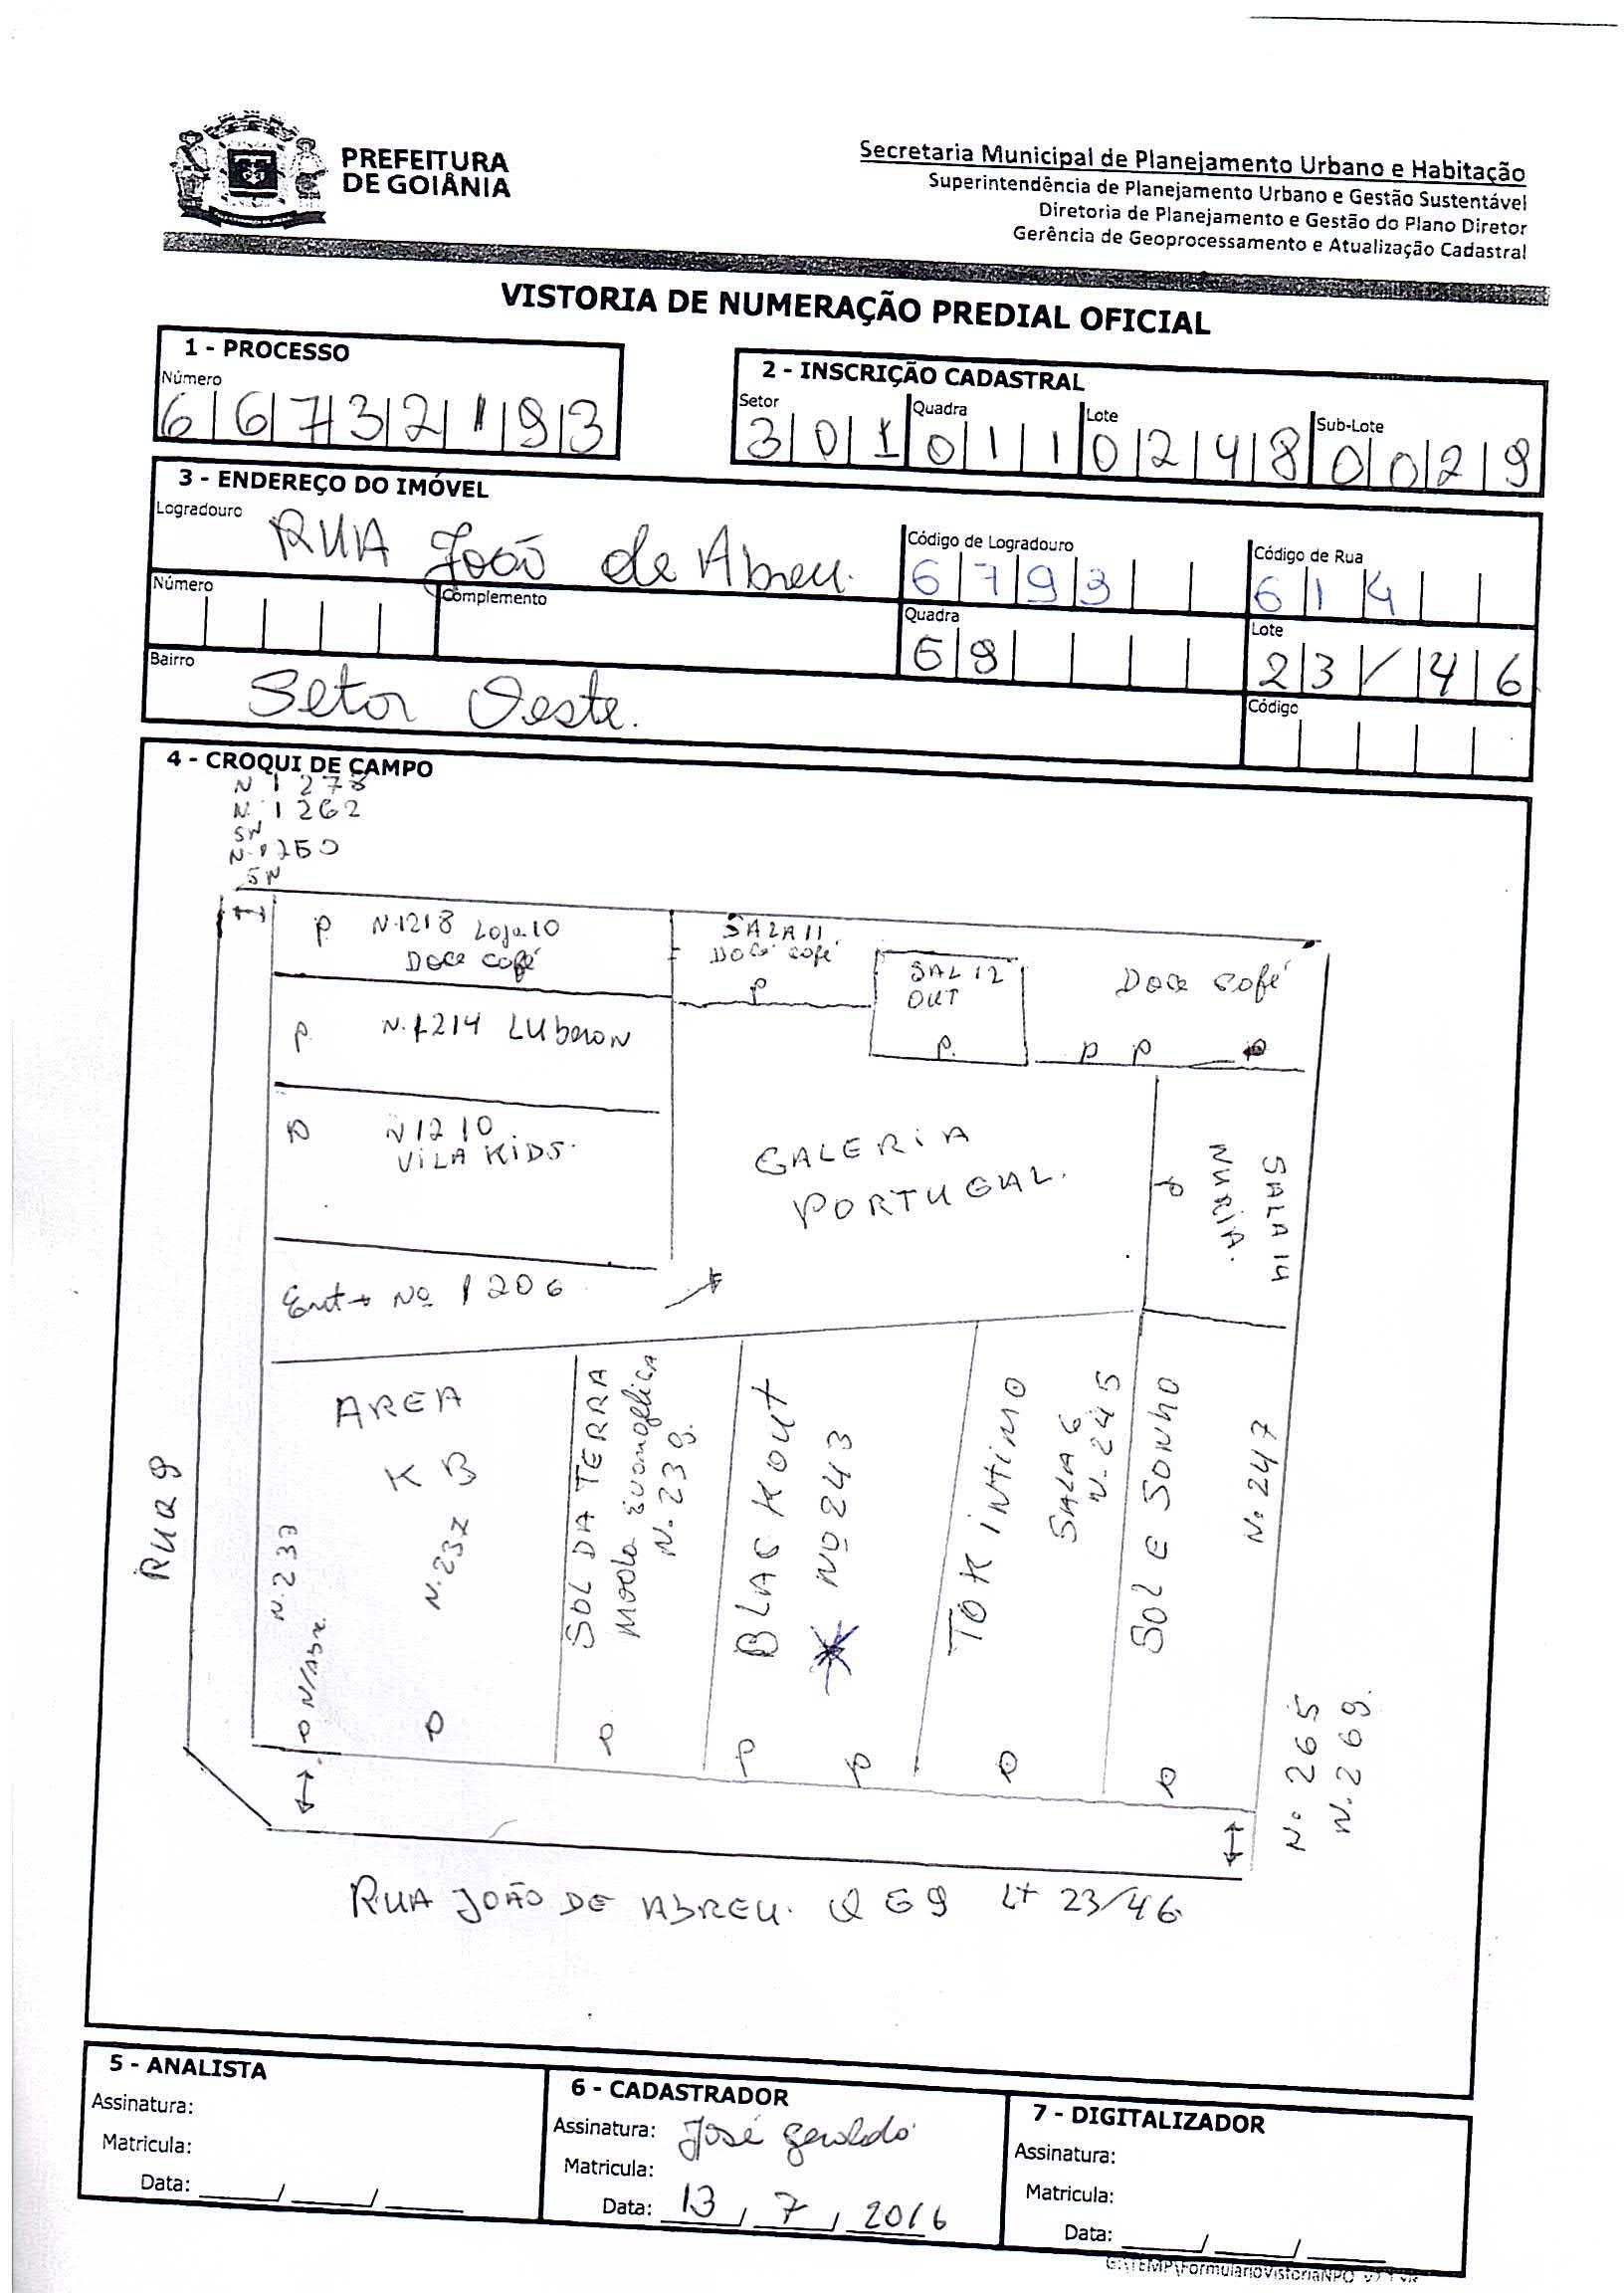 PREFEITURA
DE GOIÂNIA
Secretaria Municipal de Planejamento Urbano e Habitação
Superintendência de Planejamento Urbano e Gestão Sustentável
Diretoria de Planejamento e Gestão do Plano Diretor
Gerência de Geoprocessamento e Atualização Cadastral
VISTORIA DE NUMERAÇÃO PREDIAL OFICIAL
1 - PROCESSO
Número
6 6 7 3 2 1 9 3
2 - INSCRIÇÃO CADASTRAL
Setor Quadra Lote Sub-Lote
3 0 1 0 1 1 0 2 4 8 0 0 2 9
3 - ENDEREÇO DO IMÓVEL
Logradouro
RUA João de Abreu.
Código de Logradouro
6 7 9 3
Código de Rua
6 1 4
Número
Complemento
Quadra
G 9
Lote
2 3 / 4 6
Bairro
Setor Oeste.
Código
4 - CROQUI DE CAMPO
N 1278
N. 1262
SN
N. 1250
SN
P N.1218 Loja 10
Doce café
SALA 11
Doce café
P
SAL 12
OUT
P.
Doce café
P P P
P. N.1214 LUberoN
P N 1210
VILA KIDS.
GALERIA
PORTUGAL.
P
NURIA.
SALA 14
Ent → Nº 1206
Rua 9
AREA
K B
N. 233
N. 237
P
P
SOL DA TERRA
Moda Evangelica
N. 239.
P
BLACKOUT
Nº 243
P P
TOK INTIMO
SALA 6
N. 245
P
SOL E SONHO
N. 247
P
N. 265
N. 269.
RUA JOÃO DE ABREU. Q G9 Lt 23/46
5 - ANALISTA
Assinatura:
Matricula:
Data: ____/____/____
6 - CADASTRADOR
Assinatura: José Geraldo
Matricula:
Data: 13 / 7 / 2016
7 - DIGITALIZADOR
Assinatura:
Matricula:
Data: ____/____/____